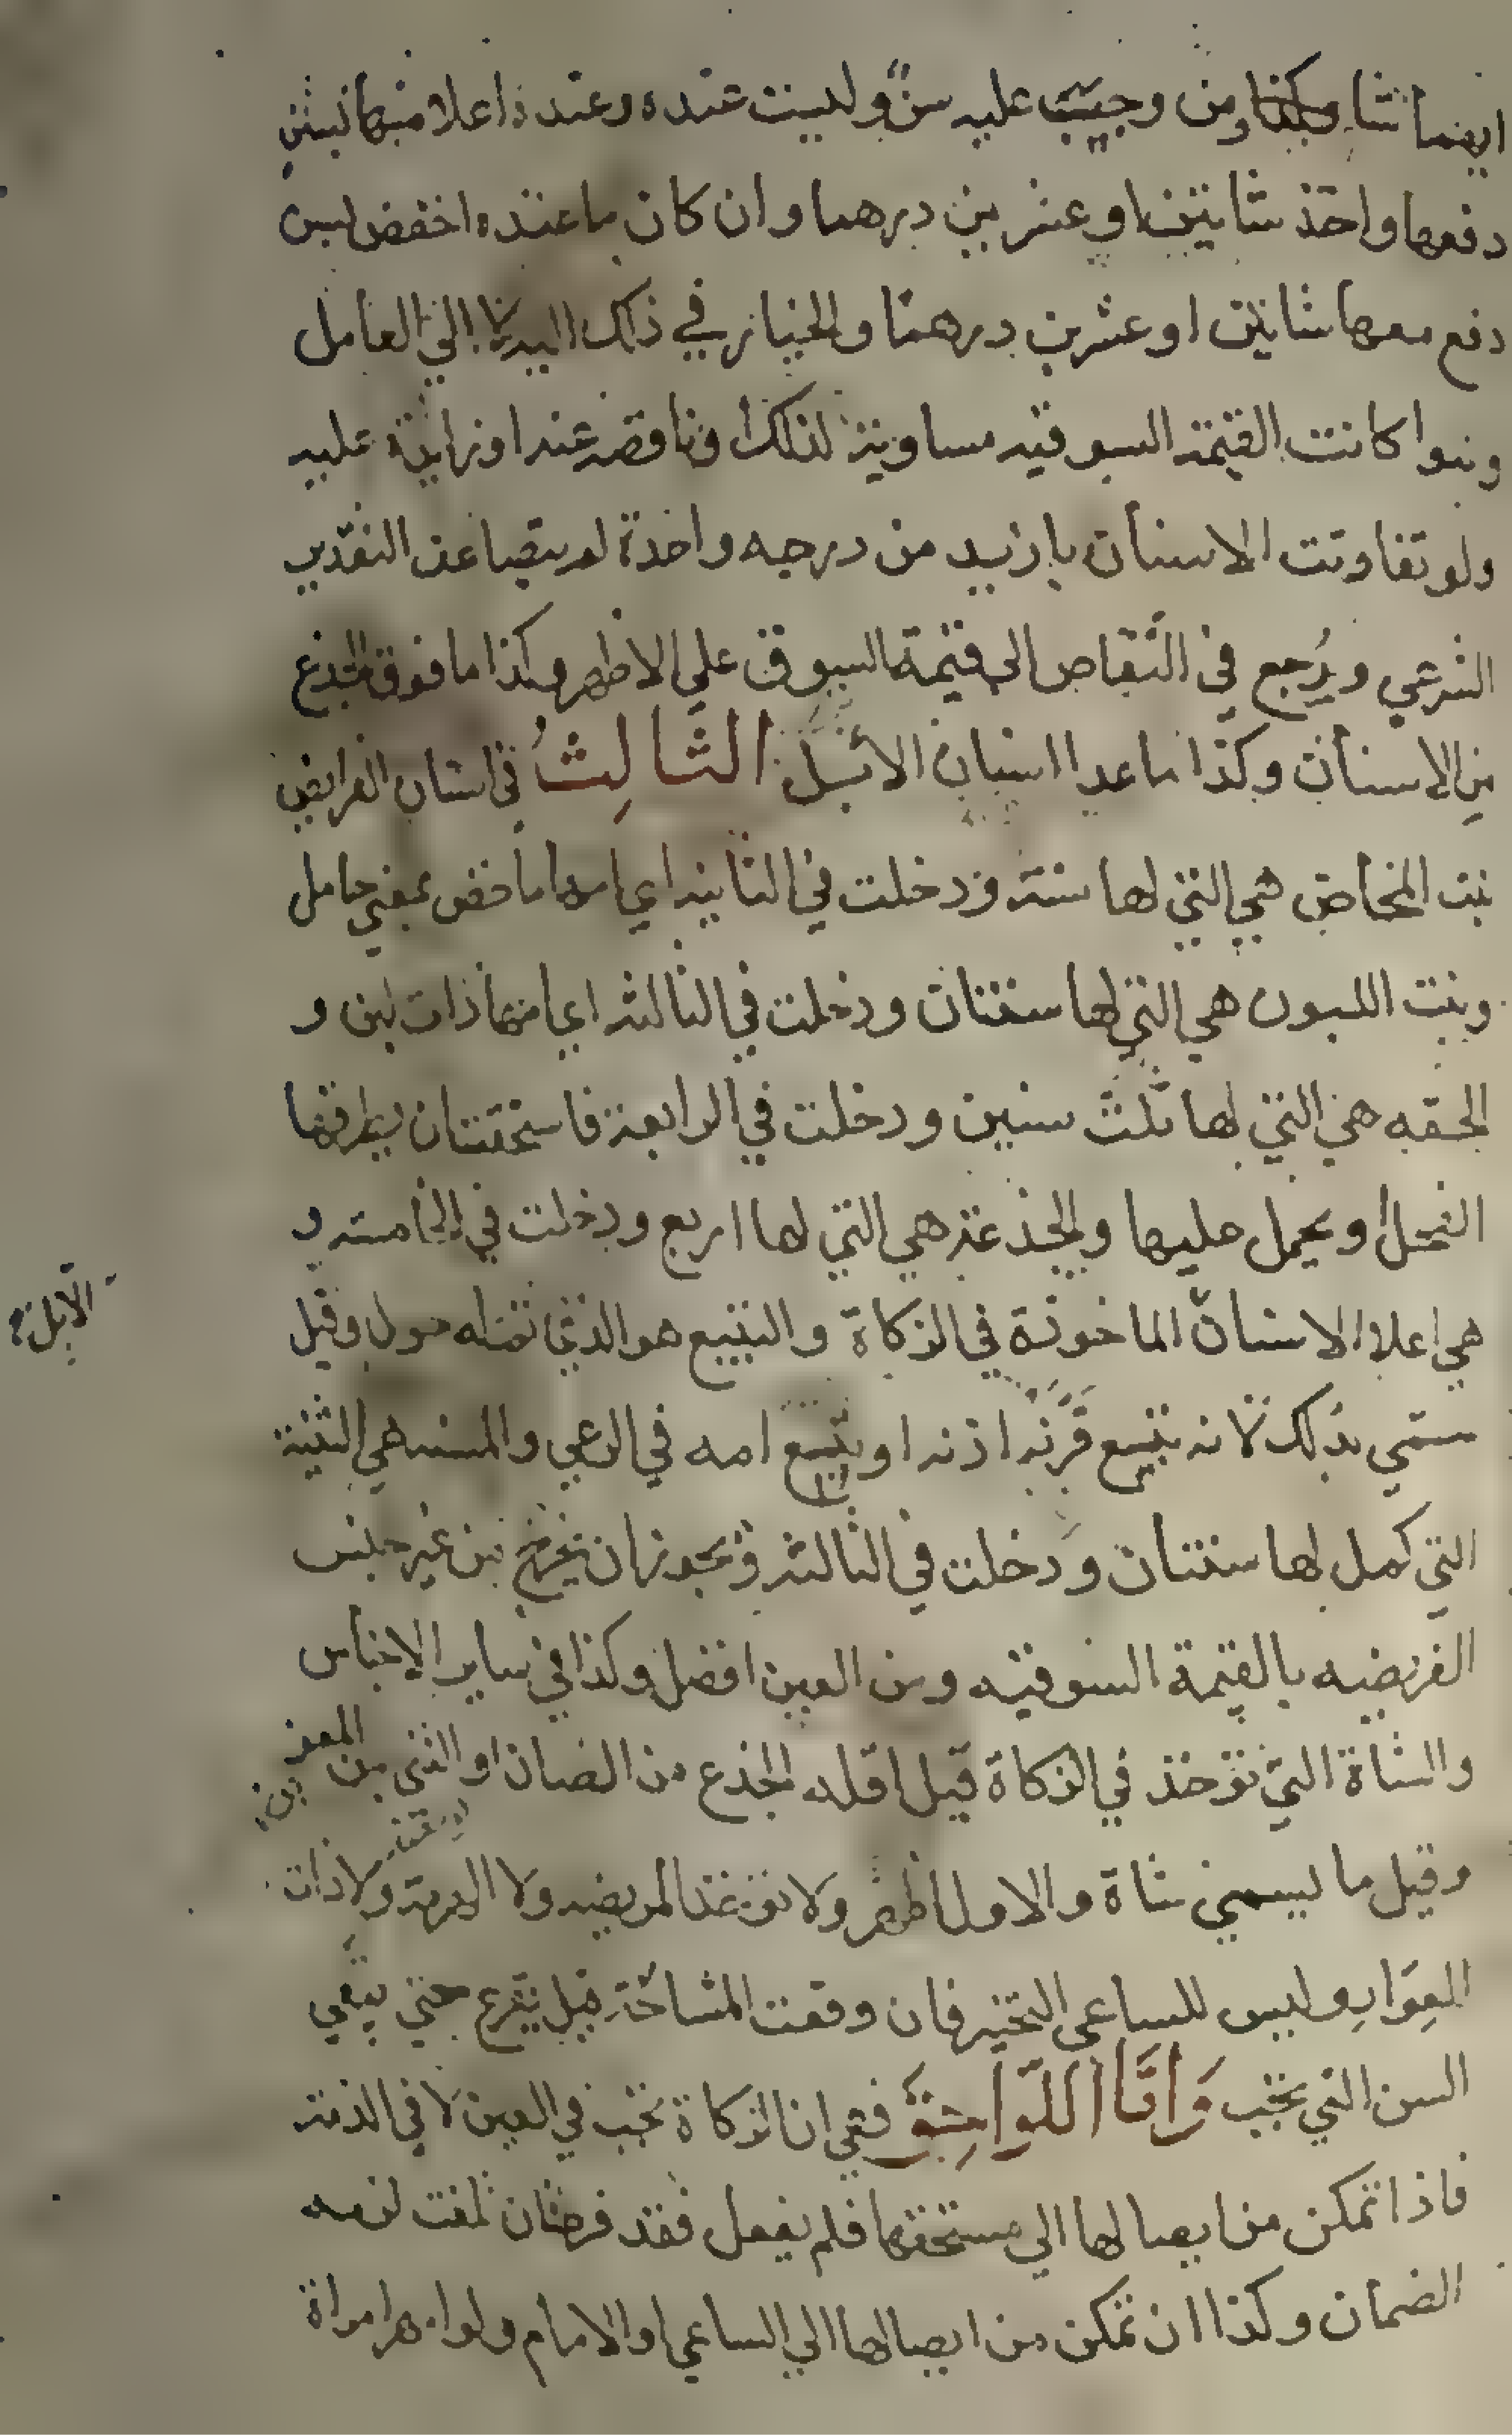 ايهما شا ومن وجبت عليه سن وليست عنده وعنده اعلا منها بسن
دفعها واخذ شاتين او عشرين درهما وان كان ما عنده اخفض بسن
دفع معها شاتين او عشرين درهما والخيار في ذلك اليه لا الي العامل
وسوا كانت القيمة السوقيه مساوية لذلك او ناقصه عنه او زايدة عليه
ولو تفاوتت الاسنان بازيد من درجه واحدة لم يتضاعف التقدير
الشرعي ويُرجع في التقاص الي قيمة السوق علي الاظهر وكذا ما فوق الجذع
من الاسنان وكذا ما عدا اسنان الابل الثالِثُ في اسنان الفرايض
بنت المخاض هي التي لها سنة ودخلت في الثانيه اي امها ماخض بمعني حامل
وبنت اللبون هي التي لها سنتان ودخلت في الثالثه اي امها ذات لبن و
الحقه هي التي لها ثلث سنين ودخلت في الرابعة فاستحقت ان يطرقها
الفحل او يحمل عليها والجذعة هي التي لها اربع ودخلت في الخامسه و
هي اعلا الاسنان الماخوذة في الزكاة والتبيع هو الذي تم له حول وقيل
الابل
سمي بذلك لانه يتبع قرنه اذنه او يتبع امه في الرعي والمسنه هي الثنية
التي كمل لها سنتان ودخلت في الثالثه ويجوز ان يخرج من غير جنس
الفريضه بالقيمة السوقيه ومن العين افضل وكذا في ساير الاجناس
والشاة التي تؤخذ في الزكاة قيل اقله الجذع من الضان او الثني من المعز
وقيل ما يسمي شاة والاول اظهر ولا تؤخذ المريضه ولا الهرمة ولا ذات
العِوَار وليس للساعي التخير فان وقعت المشاحّة قيل يقرع حتي يبقي
السن التي تجب وَامَّا اللّوَاحِقُ فهي ان الزكاة تجب في العين لا في الذمة
فاذا تمكن من ايصالها الي مستحقها فلم يفعل فقد فرط فان تلفت لزمه
الضمان وكذا ان تمكن من ايصالها الي الساعي او الامام ولو امهر امراة